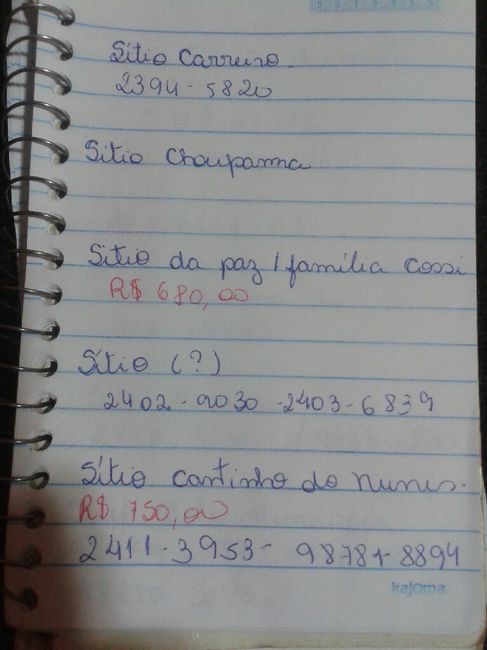 Sitio Carreiro
2394-5820
Sitio Choupanna
Sitio da paz / família Cossi
R$ 680,00
Sítio (?)
2402-9030 - 2403-6839
Sítio cantinho do nunes.
R$ 750,00
2411-3953 - 98781-8894
kajoma